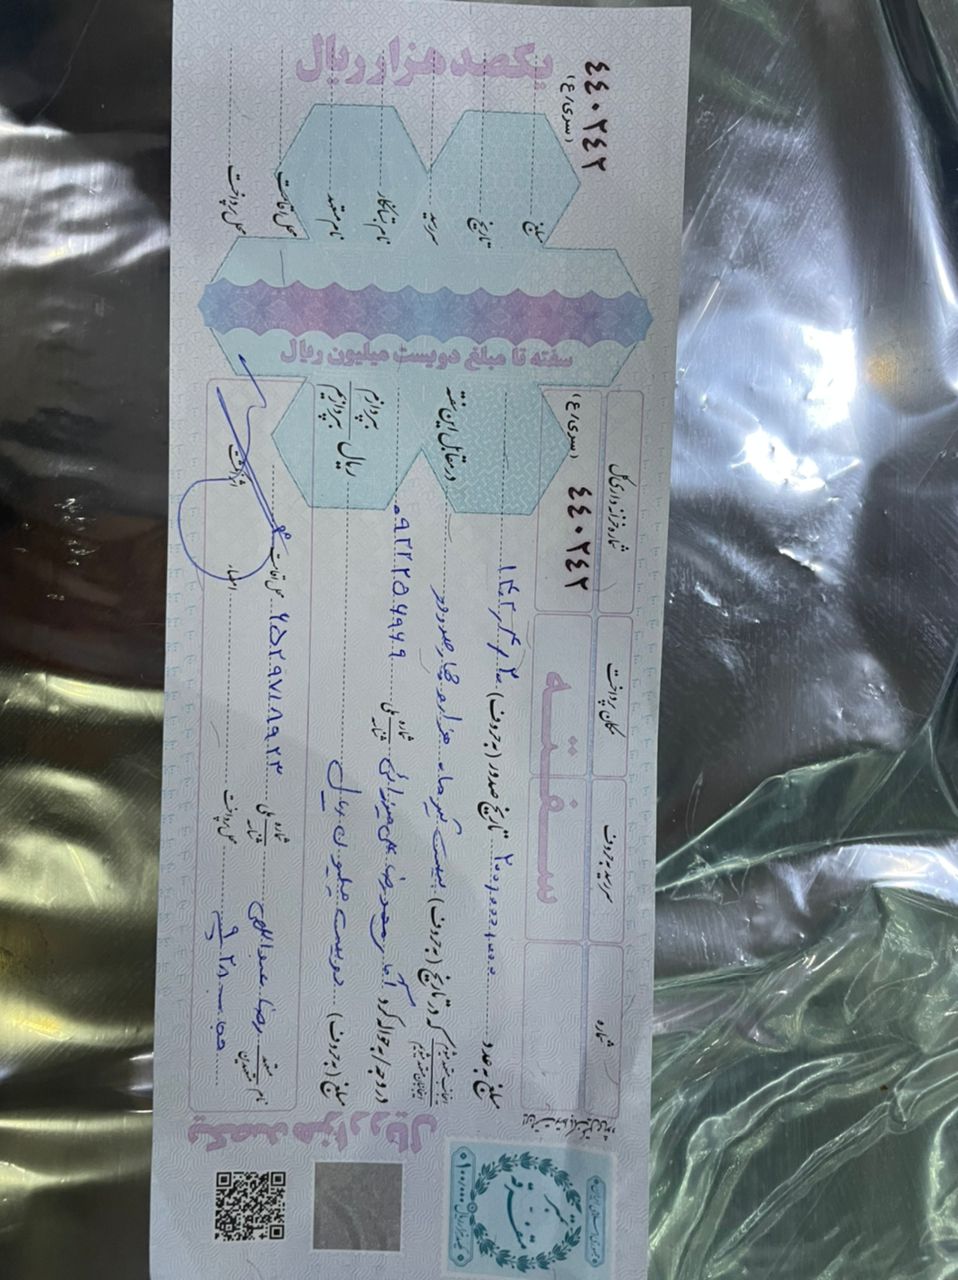 جمهوری اسلامی ایران
تمبر
متفرقه
یکصد هزار ریال
۱۰۰/۰۰۰
یکصد هزار ریال
شماره
سررسید به حروف
مکان پرداخت
شماره خزانه داری کل
سفته
٤٤٠٢٤٢
(سری/ع)
مبلغ به عدد ۲۰۰/۰۰۰/۰۰۰ تاریخ صدور (به حروف) ۱۴۰۲/۴/۲۰
اینجانب متعهد میشوم
اینجانبان متعهد میشویم
که در تاریخ (به حروف) بیست تیر ماه هزار و چهارصد و دو در مقابل این سفته
در وجه / به حواله کرد آقای محمدرضا علی میرزائی شماره ملی شناسه ۰۹۲۲۲۵۶۹۶۹
مبلغ (به حروف) دویست میلیون ریال ریال بپردازم بپردازیم
نام متعهد متعهدین رضا عبداللهی شماره ملی شناسه ۶۵۲۹۷۱۸۹۲۳ محل اقامت
۲۸ محل پرداخت امضاء اثر انگشت
سفته تا مبلغ دویست میلیون ریال
٤٤٠٢٤٢
(سری/ع)
مبلغ
تاریخ
سررسید
نام بستانکار
نام متعهد
محل اقامت
محل پرداخت
یکصد هزار ریال